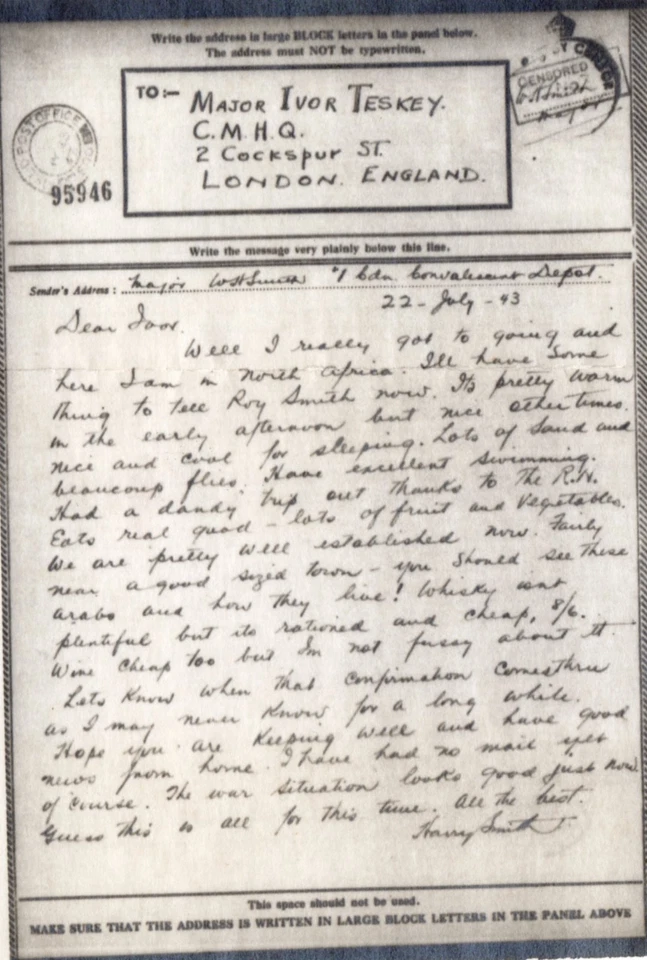 Write the address in large BLOCK letters in the panel below.
The address must NOT be typewritten.
TO:—
MAJOR IVOR TESKEY.
C.M.H.Q.
2 COCKSPUR ST.
LONDON. ENGLAND.
POST OFFICE
95946
CENSORED
Major
Write the message very plainly below this line.
Sender's Address: Major WH Smith #1 Cdn. Convalescent Depot.
22 - July - 43
Dear Ivor.
Well I really got to going and
here I am in North Africa. Ill have some
thing to tell Roy Smith now. Its pretty warm
in the early afternoon but nice other times.
nice and cool for sleeping. Lots of sand and
beaucoup flies. Have excellent swimming.
Had a dandy trip out thanks to the R.N.
Eats real good - lots of fruit and vegetables.
We are pretty well established now. Fairly
near a good sized town - you should see these
arabs and how they live! Whisky isnt
plentiful but its rationed and cheap, 8/6.
Wine cheap too but Im not fussy about it.
Lets know when that confirmation comes thru
as I may never know for a long while.
Hope you are keeping well and have good
news from home. I have had no mail yet
of course. The war situation looks good just now.
Guess this is all for this time. All the best.
Harry Smith
This space should not be used.
MAKE SURE THAT THE ADDRESS IS WRITTEN IN LARGE BLOCK LETTERS IN THE PANEL ABOVE